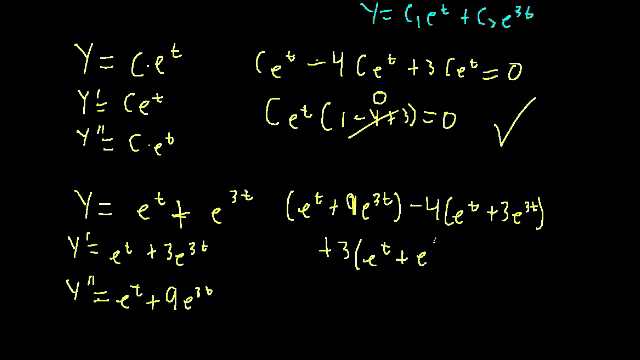 Y = C₁e^t + C₂e^3t
Y = C·e^t
Y' = Ce^t
Y'' = C·e^t
Ce^t - 4Ce^t + 3Ce^t = 0
0
Ce^t (1 - 4 + 3) = 0 ✓
Y = e^t + e^3t
Y' = e^t + 3e^3t
Y'' = e^t + 9e^3t
(e^t + 9e^3t) - 4(e^t + 3e^3t)
+ 3(e^t + e